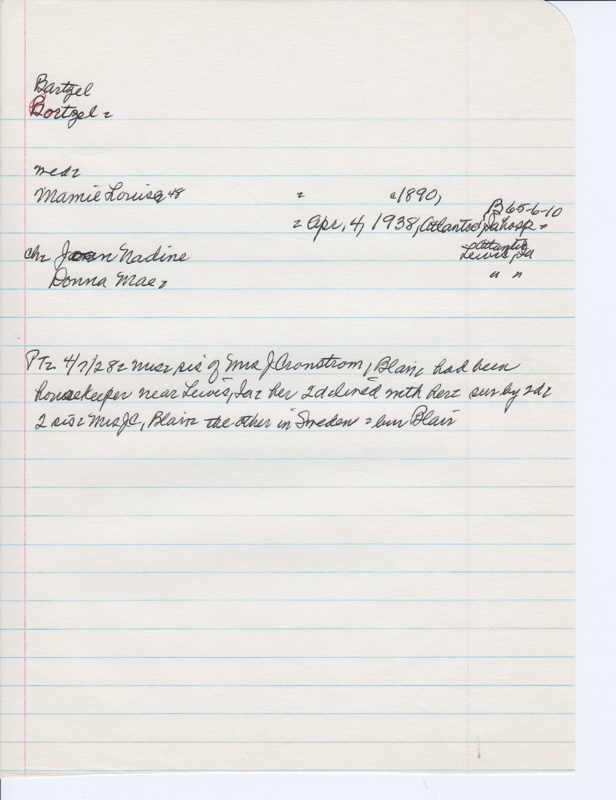 Bartzel
Bortzel =
med =
Mamie Louise 48 = c1890,
B65-6-10
= Apr. 4, 1938, Atlantic, Ia hosp =
Atlantic
ch = Joan Nadine Lewis, Ia
Donna Mae = " "
PT = 4/7/28 = sis of Mrs J Cronstrom, Blair = had been
housekeeper near Lewis, Ia = her 2d lived with her = sur by 2d =
2 sis = Mrs JC, Blair = the other in Sweden = bur Blair